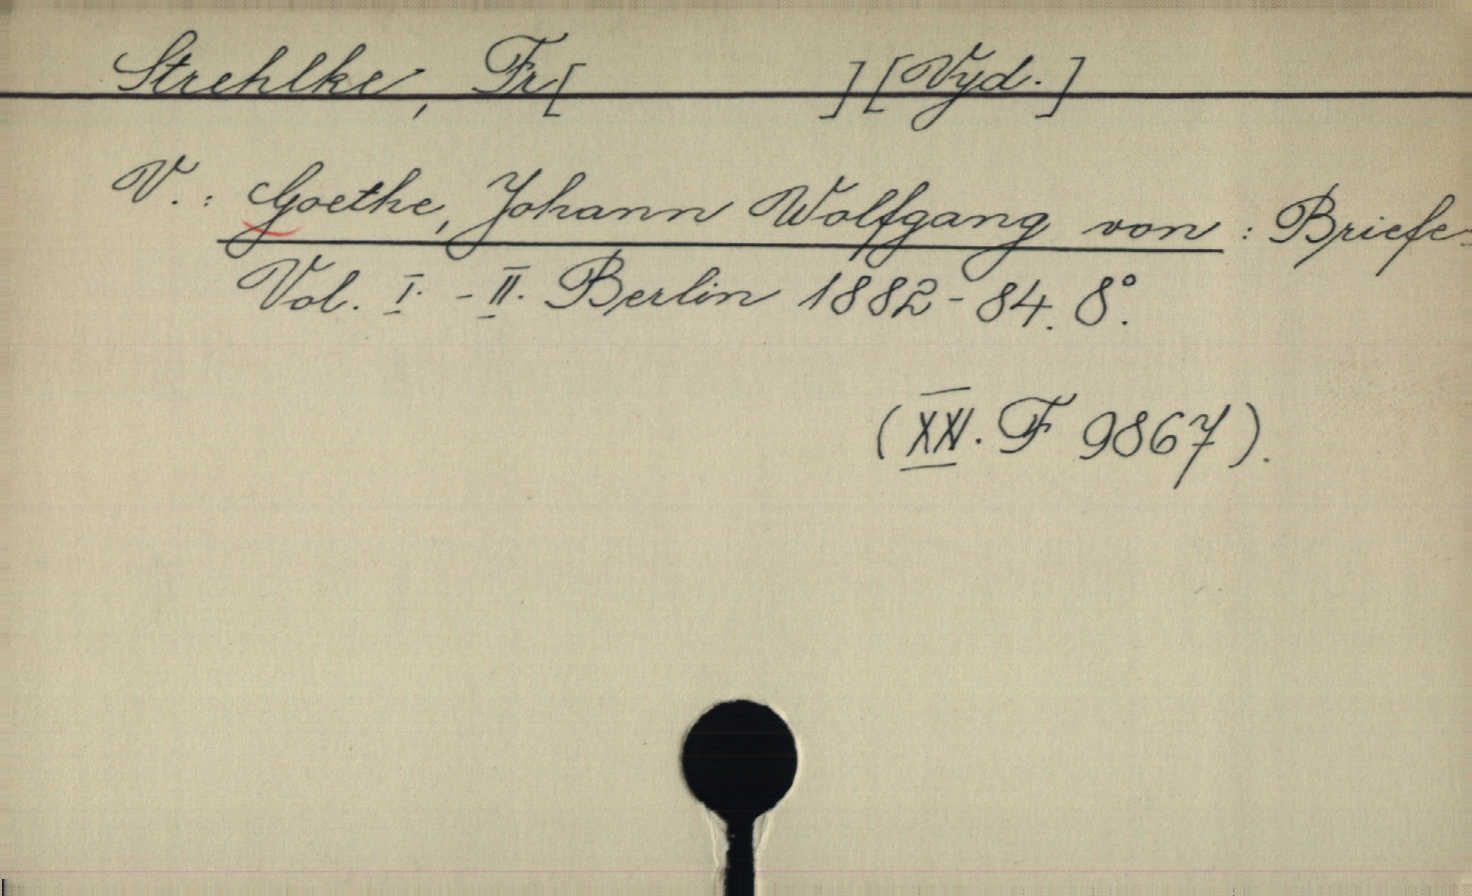 Strehlke, Fr[ ] [Vyd.]
V.: Goethe, Johann Wolfgang von: Briefe
Vol. I. - II. Berlin 1882-84. 8°.
(XXI. F 9867).